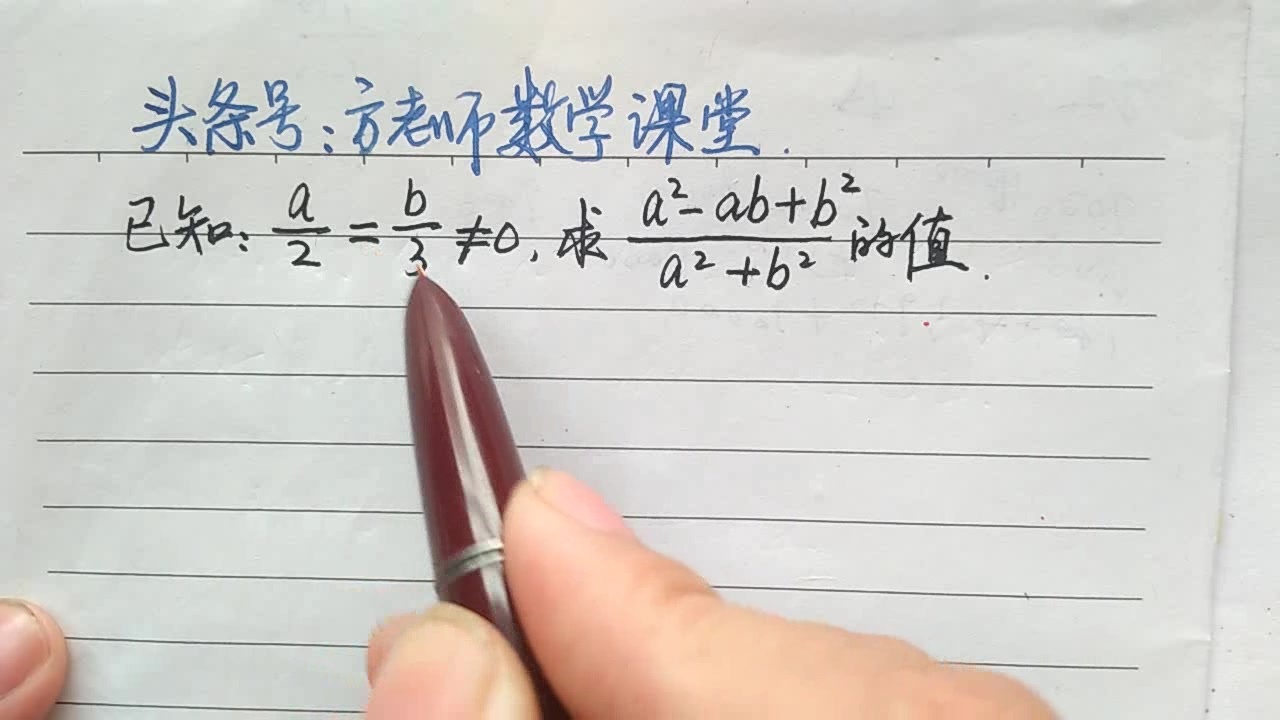 头条号:方老师数学课堂.
已知: a/2 = b/3 ≠0, 求 (a²-ab+b²)/(a²+b²) 的值.